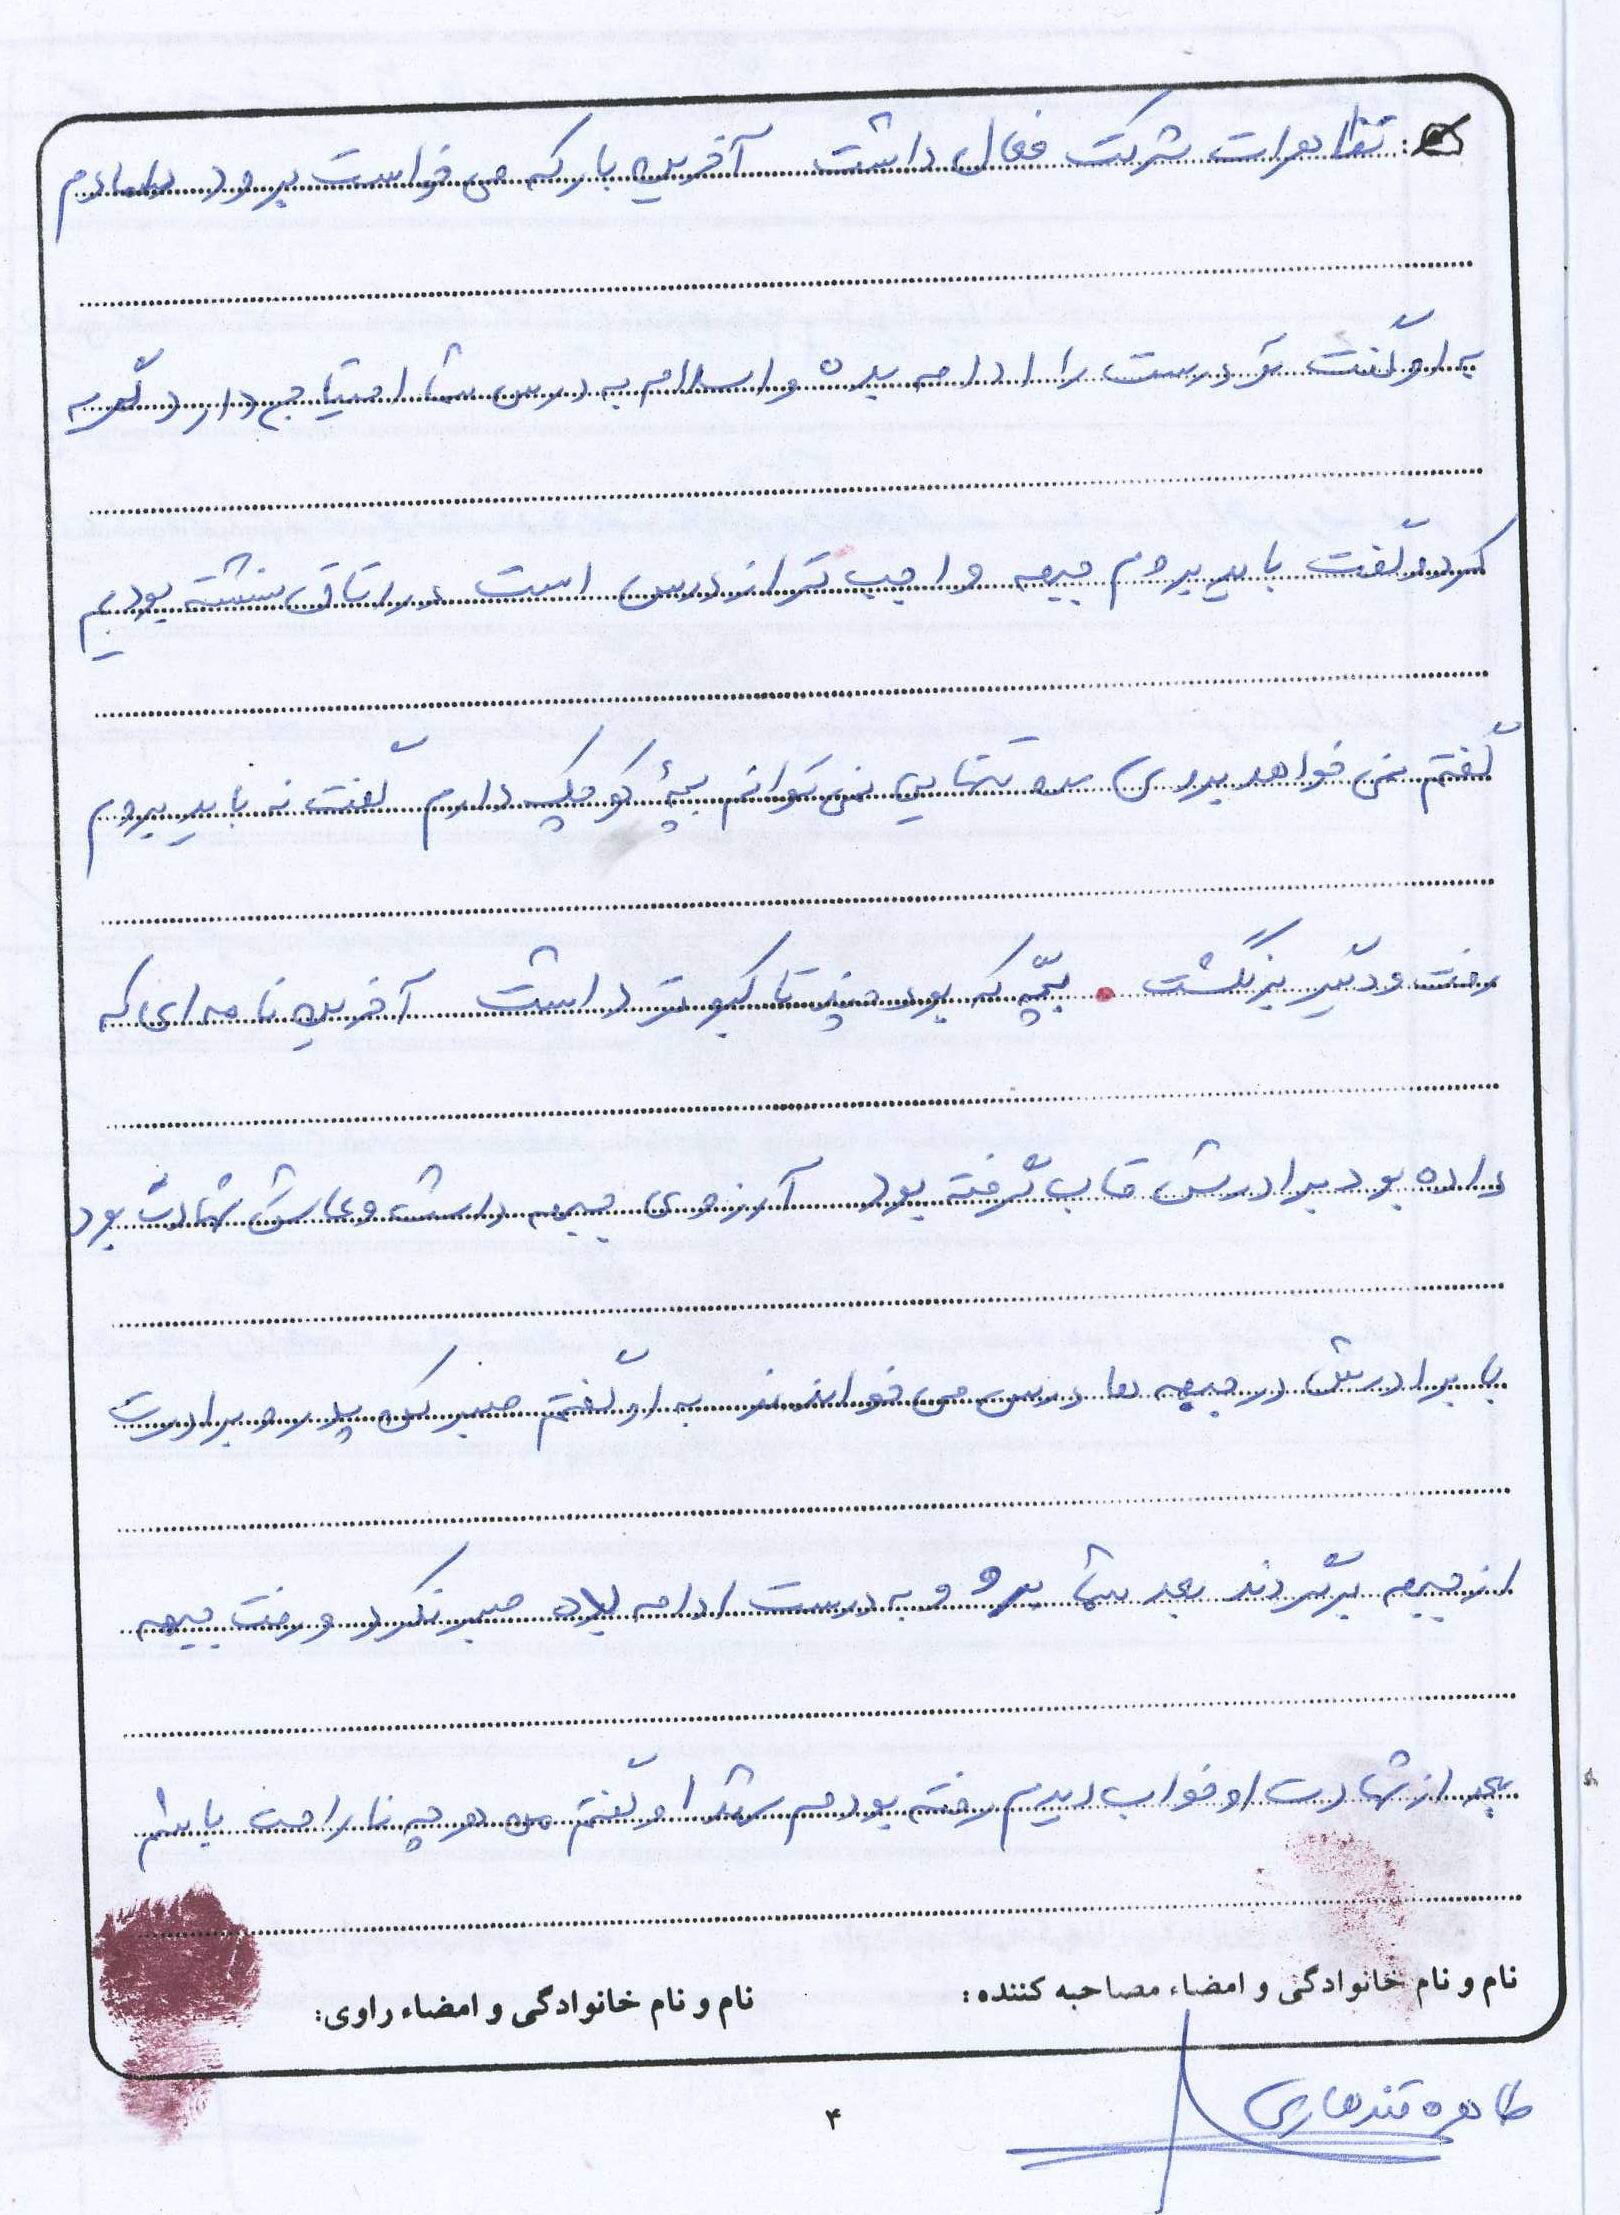 : تظاهرات شرکت فعال داشت آخرین بار که می خواست برود
به او گفت تو درست را ادامه بده و اسلام به درس شما احتیاج دارد گریه
کرد و گفت باید بروم جبهه واجب تر از درس است در اتاق نشسته بودیم
گفتم نمی خواهد بروی من تنهایی نمی توانم بچۀ کوچک دارم گفت نه باید بروم
رفت و دیگر برنگشت . بچّه که بود چند تا کبوتر داشت آخرین نامه ای که
داده بود برادرش قاب گرفته بود آرزوی جبهه داشت و عاشق شهادت بود
با برادرش در جبهه ها درس می خواندند به او گفتم صبر کن پدر و برادرت
از جبهه برگردند بعد شما برو و به درست ادامه بده صبر نکرد و رفت جبهه
بعد از شهادت او خواب دیدم رفته بودم سر قبر او گفتم من هر چه ناراحت باشم
نام و نام خانوادگی و امضاء مصاحبه کننده: نام و نام خانوادگی و امضاء راوی:
طاهره قندهاری
۴